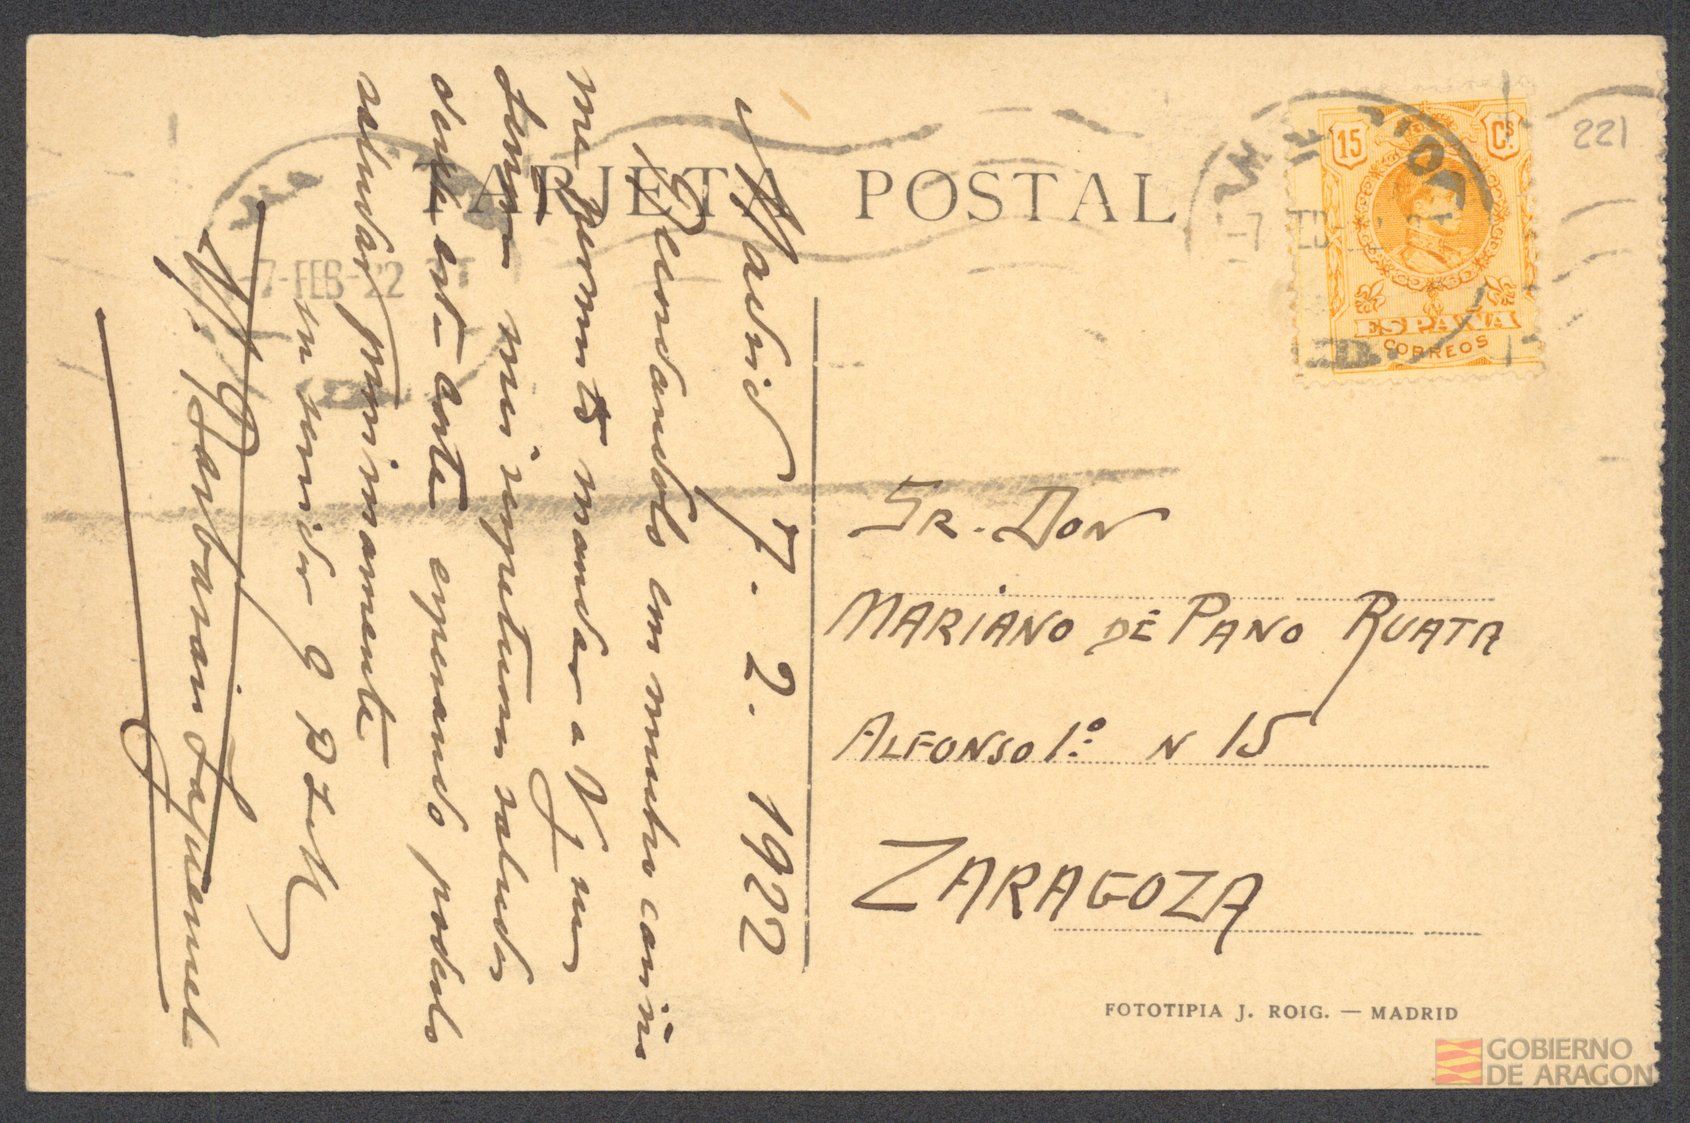 TARJETA POSTAL
221
15 Cs
ESPAÑA
CORREOS
7-FEB-22
Madrid 7. 2. 1922
Recordandolo con mucho cariño
me permito mandar a V y sus
mis respetuosos saludos
desde esta corte esperando poderlo
saludar proximamente
su servidor q
Sr. Don
MARIANO DE PANO RUATA
ALFONSO 1º N 15
ZARAGOZA
FOTOTIPIA J. ROIG. — MADRID
GOBIERNO
DE ARAGON